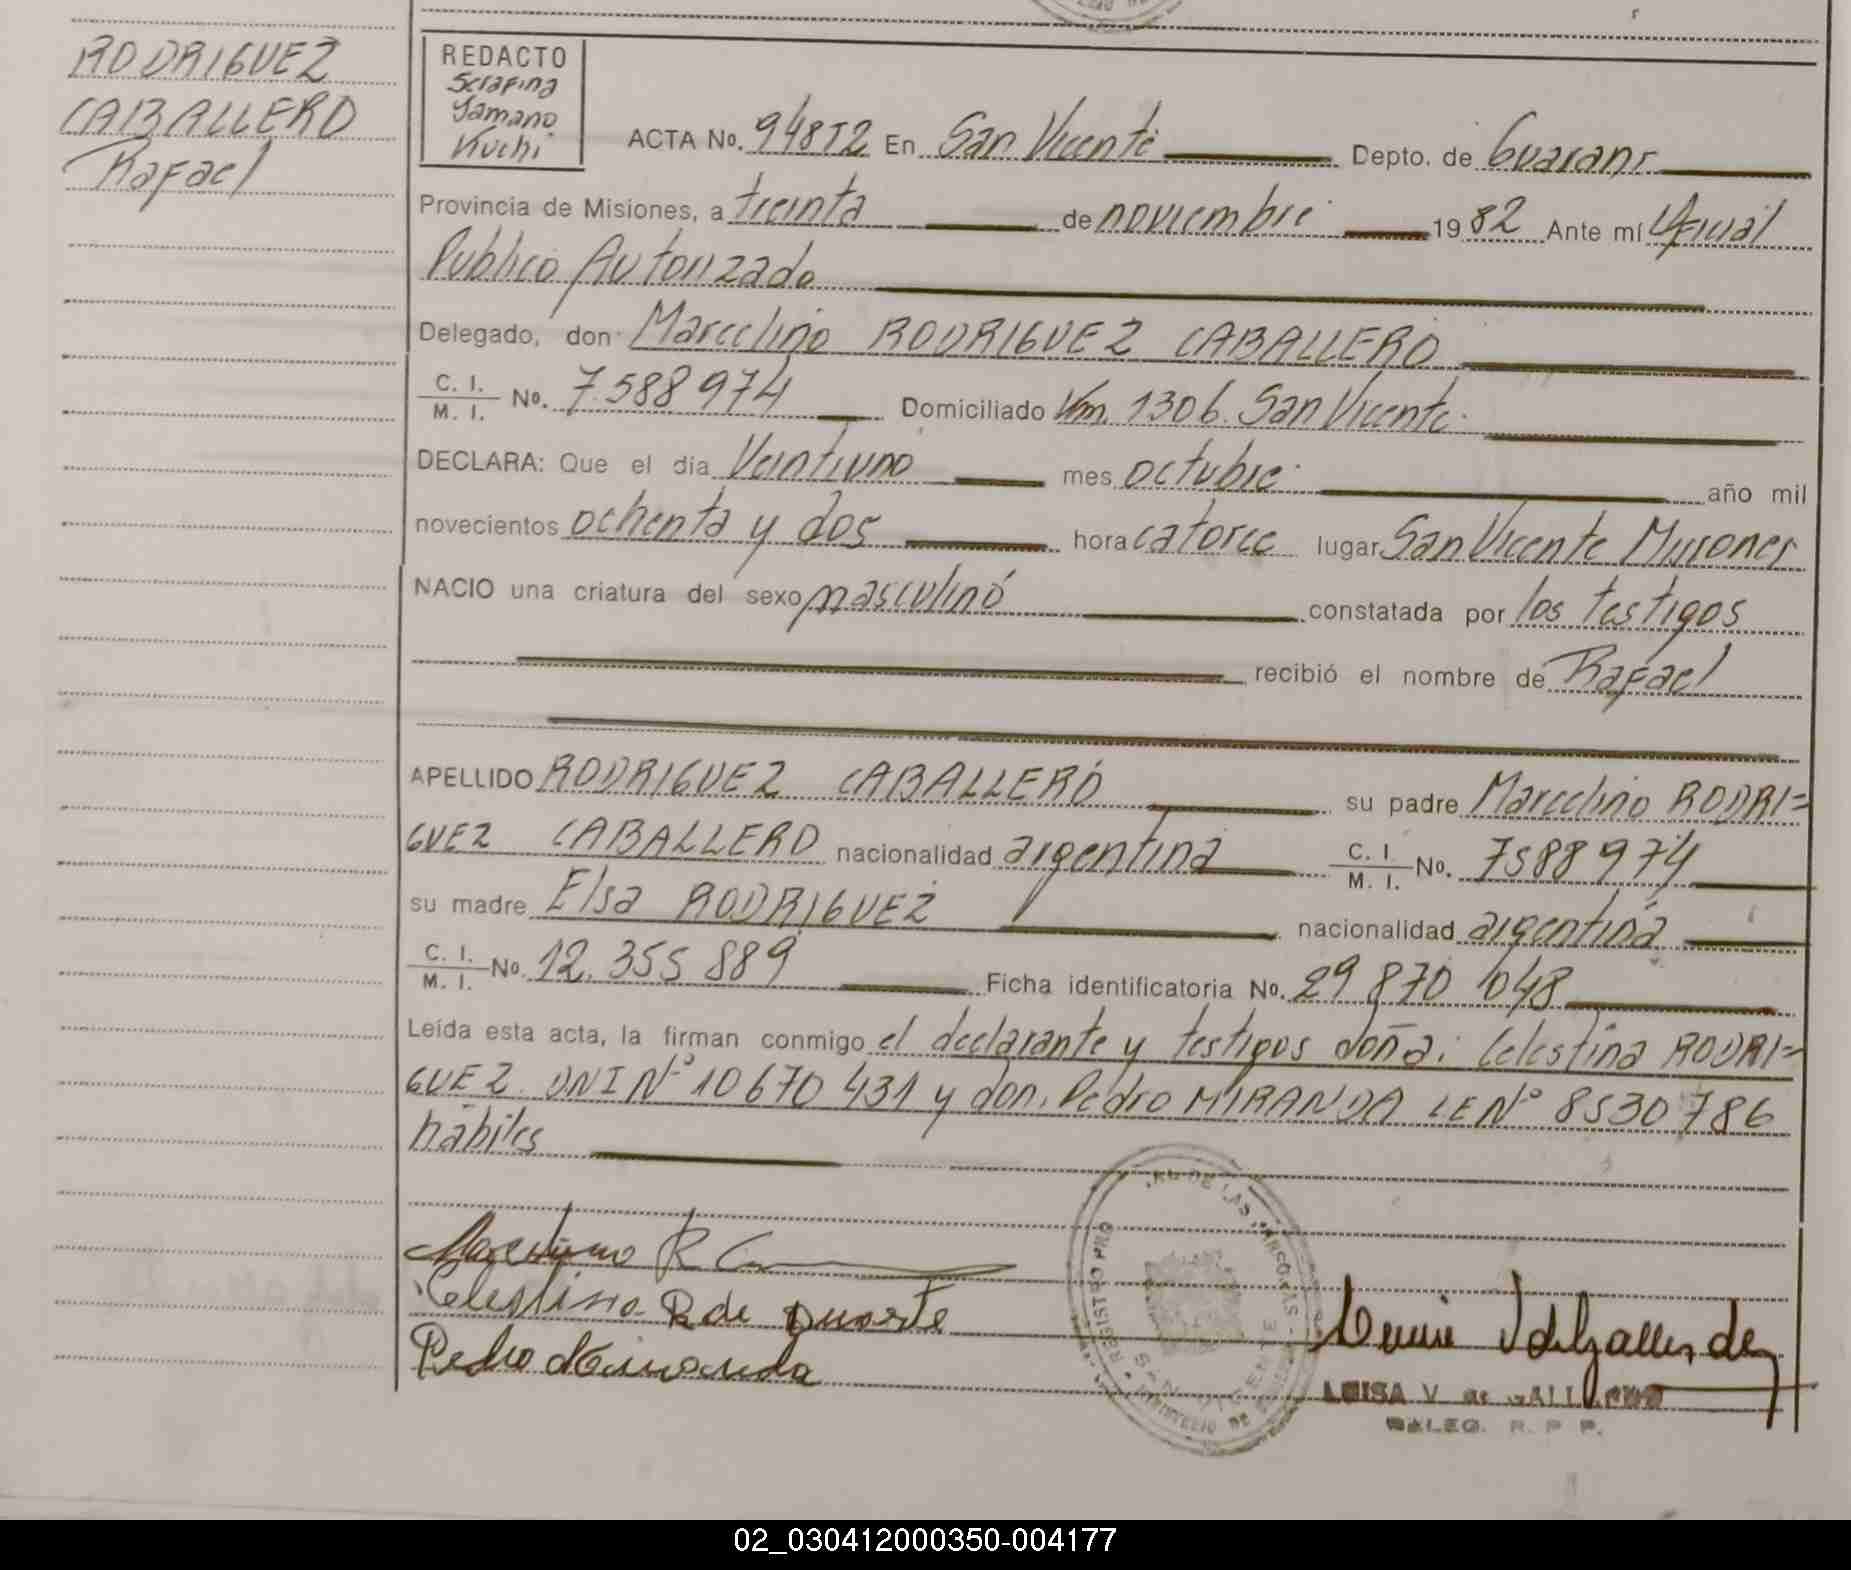 RODRIGUEZ
CABALLERO
Rafael
REDACTO
Serafina
Yamano
Kuchi
ACTA No. 948T2 En San Vicente Depto. de Guaraní
Provincia de Misiones, a treinta de noviembre 1982 Ante mí Oficial
Publico Autorizado
Delegado, don Marcelino RODRIGUEZ CABALLERO
C. I.
M. I. No. 7.588 974 Domiciliado Km. 1306. San Vicente
DECLARA: Que el dia Veintiuno mes octubre año mil
novecientos ochenta y dos hora catorce lugar San Vicente Misiones
NACIO una criatura del sexo masculino constatada por los testigos
recibió el nombre de Rafael
APELLIDO RODRIGUEZ CABALLERO su padre Marcelino RODRI=
GUEZ CABALLERO nacionalidad argentina C. I.
M. I. No. 7588 974
su madre Elsa RODRIGUEZ nacionalidad argentina
C. I.
M. I. No. 12.355 889 Ficha identificatoria No. 29 870 048
Leída esta acta, la firman conmigo el declarante y testigos doña: Celestina RODRI=
GUEZ DNI Nº 10 670 431 y don. Pedro MIRANDA LE Nº 8530 786
hábiles
Marcelino R C
Celestina R de Duarte
Pedro Miranda
REGISTRO PRO DE LAS PERSONAS
SAN VICENTE
MINISTERIO DE
LUISA V de GALL
DELEG. R. P. P.
02_030412000350-004177